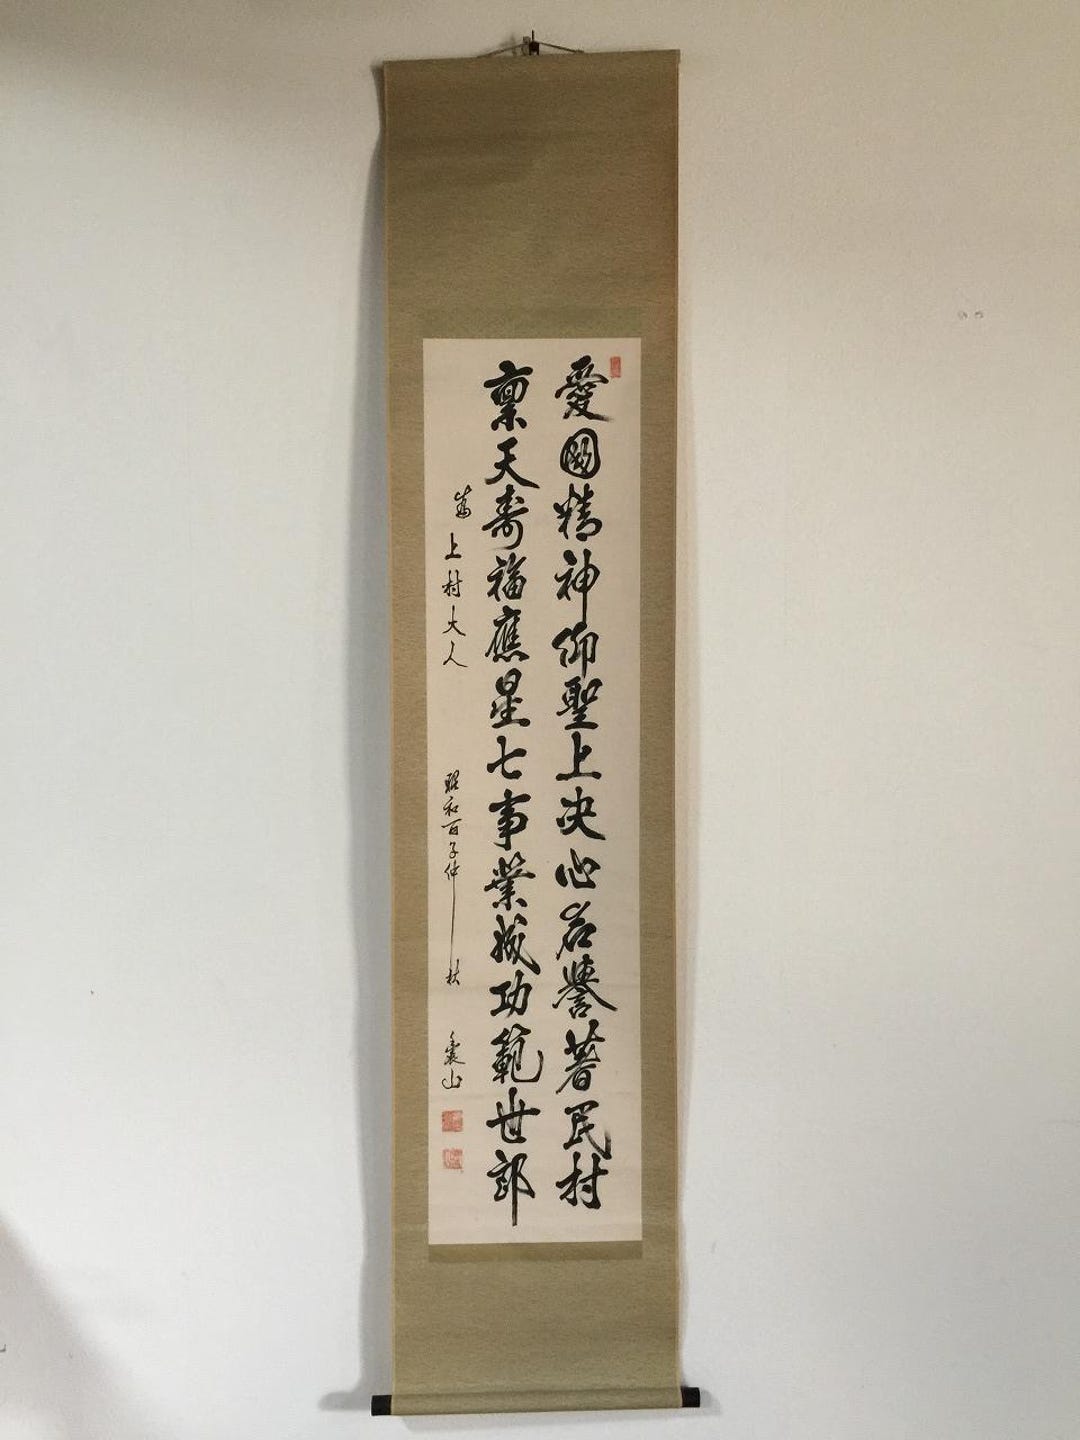 愛國精神仰聖上决心名譽著民村
稟天壽福應星七事業成功範世郎
為上村大人
昭和丙子仲秋
山